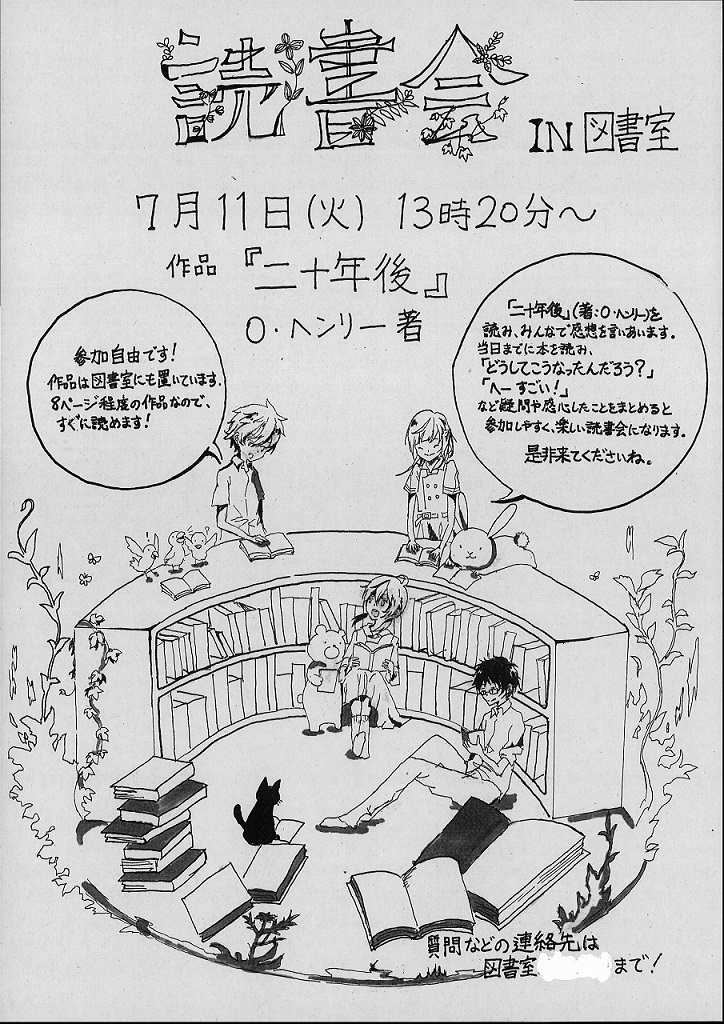 読書会 IN 図書室
7月11日(火) 13時20分～
作品『二十年後』
O・ヘンリー著
参加自由です！
作品は図書室にも置いています。
8ページ程度の作品なので、
すぐに読めます！
「二十年後」(著:O・ヘンリー)を
読み、みんなで感想を言いあいます。
当日までに本を読み、
「どうしてこうなったんだろう？」
「へーすごい！」
など疑問や感心したことをまとめると
参加しやすく、楽しい読書会になります。
是非来てくださいね。
質問などの連絡先は
図書室 まで！